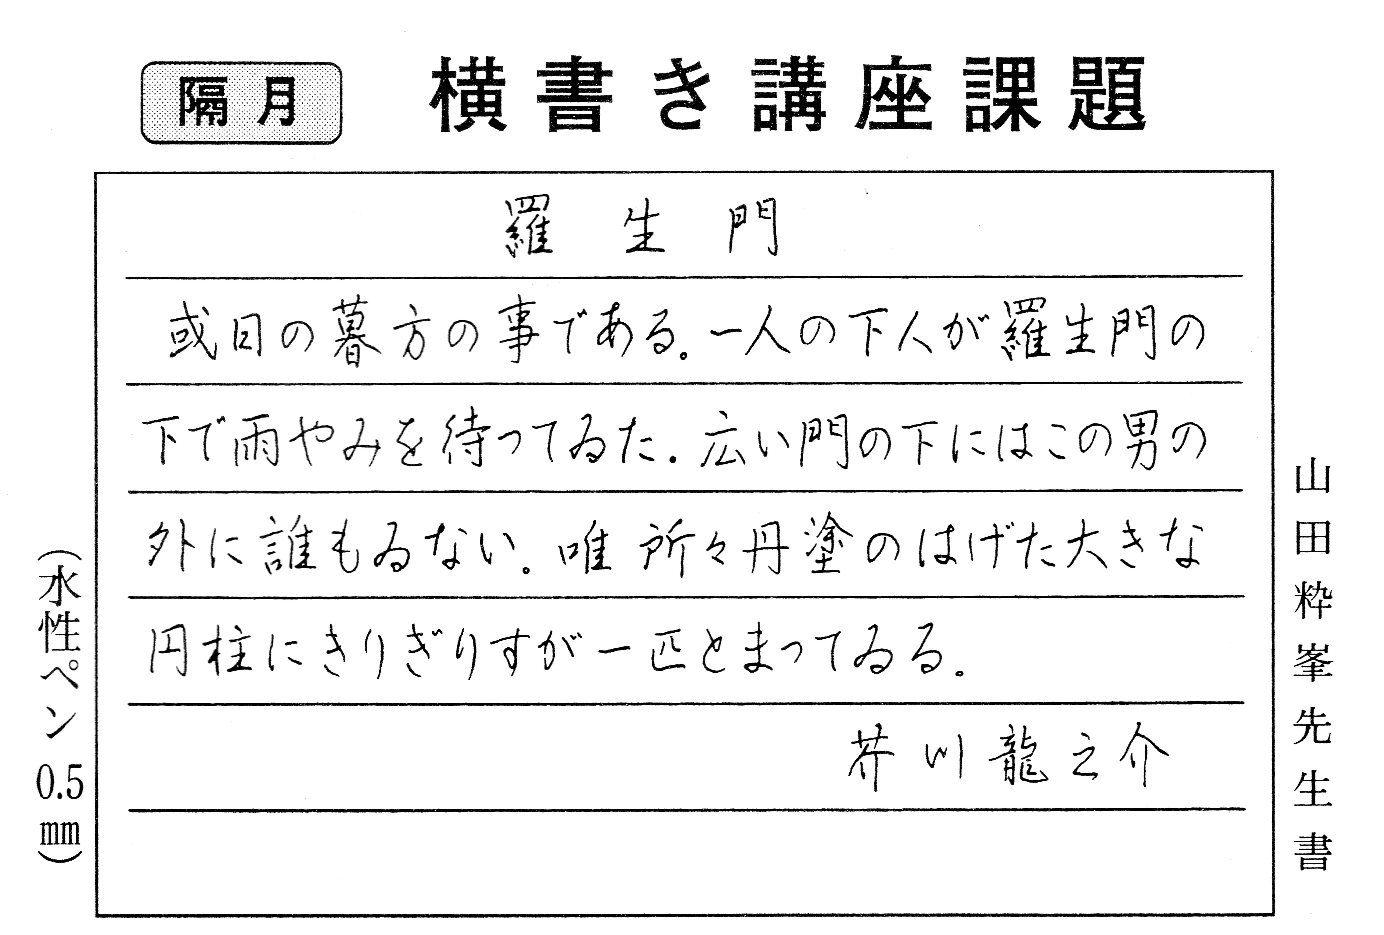 隔月
横書き講座課題
羅生門
或日の暮方の事である。一人の下人が羅生門の
下で雨やみを待つてゐた。広い門の下にはこの男の
外に誰もゐない。唯所々丹塗のはげた大きな
円柱にきりぎりすが一匹とまつてゐる。
芥川龍之介
山田粋峯先生書
(水性ペン0.5mm)